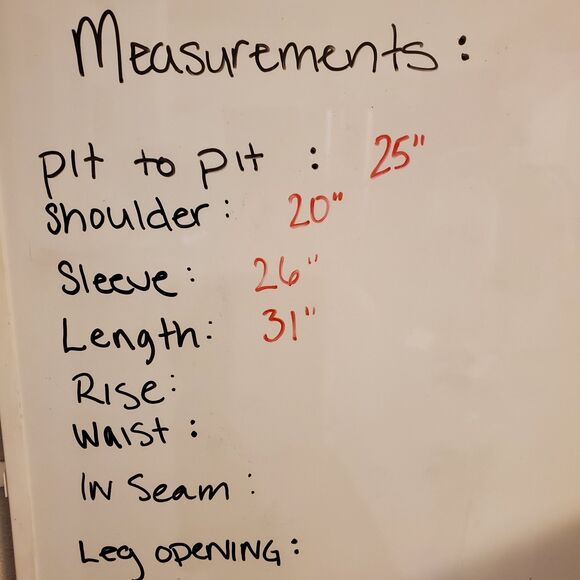 Measurements:
pit to pit : 25"
shoulder: 20"
Sleeve: 26"
Length: 31"
Rise:
Waist:
In Seam:
Leg opening: